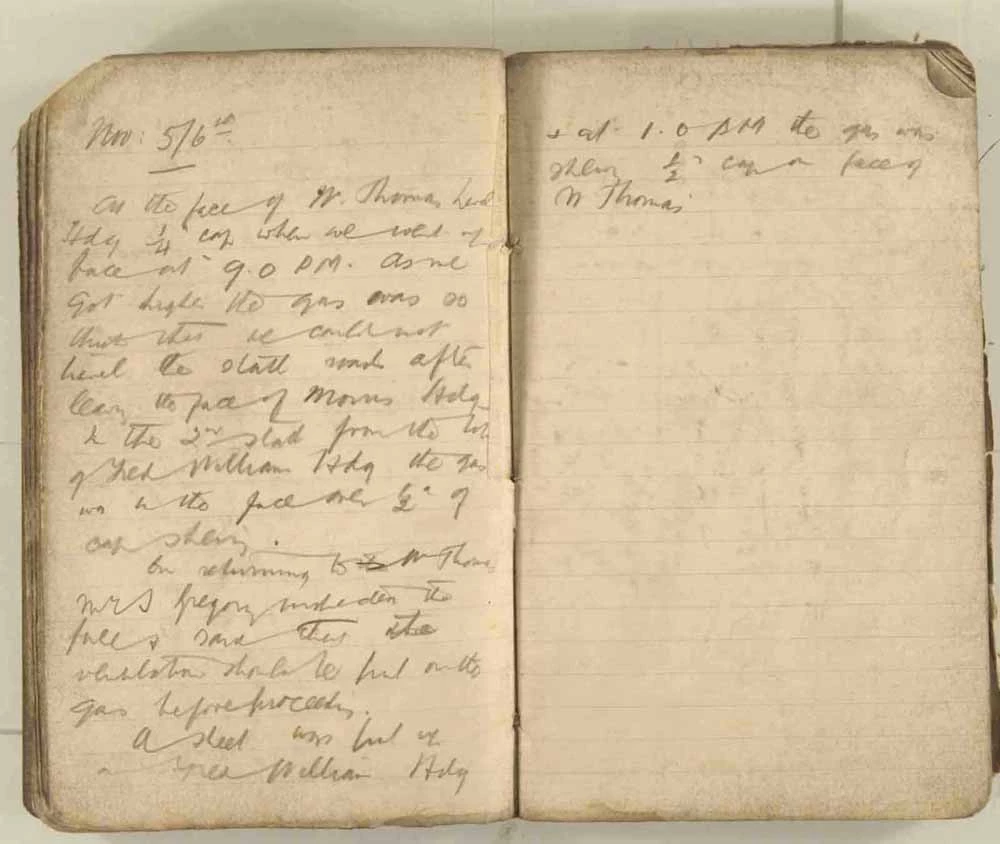 Nov: 5/6th
At the face of W. Thomas
Hdg 1/4" cap when we went up
face at 9.0 PM. As we
got higher the gas was so
that we could not
the stall roads after
leaving the face of Morris Hdg
In the 2nd stall from the
of Fred William Hdg the gas
was in the face over 1/2" of
cap shewing.
On returning to W Thomas
Mr S Gregory inspected the
face & said that the
ventilation should be put on the
gas before proceeding.
A sheet was put up
in Fred William Hdg
& at 1.0 AM the gas was
shewing 1/2" cap on face of
W Thomas